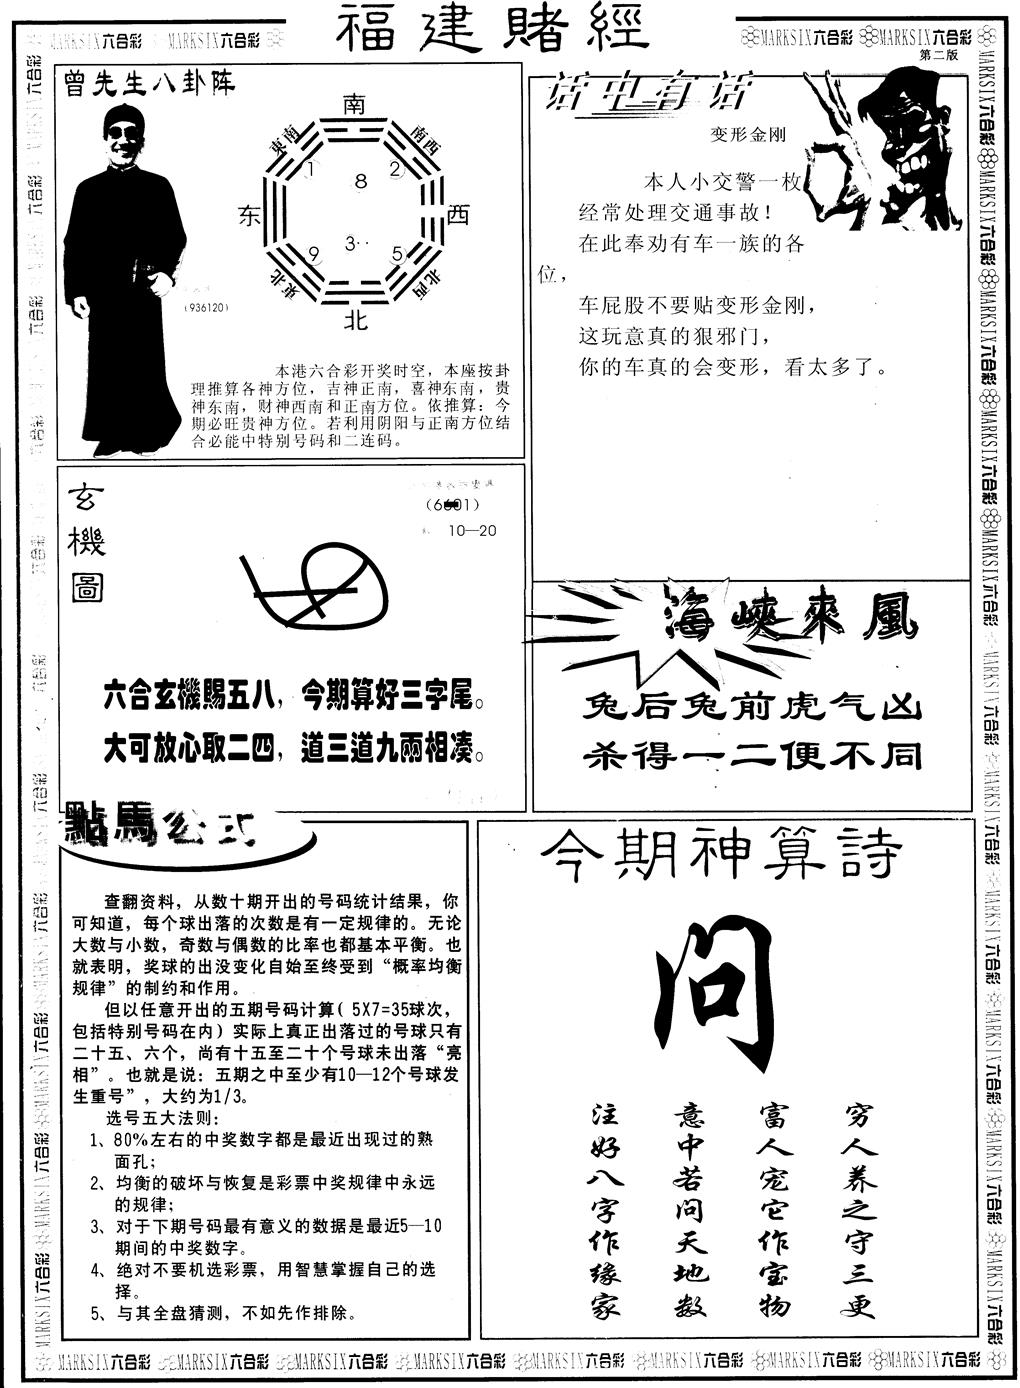 福建賭經
MARKSIX六合彩 MARKSIX六合彩
MARKSIX六合彩 MARKSIX六合彩
第二版
曾先生八卦阵
南
東南
南西
1
8
2
东
西
9
3
5
東北
北西
北
(936120)
本港六合彩开奖时空，本座按卦
理推算各神方位，吉神正南，喜神东南，贵
神东南，财神西南和正南方位。依推算：今
期必旺贵神方位。若利用阴阳与正南方位结
合必能中特别号码和二连码。
话中有话
变形金刚
本人小交警一枚
经常处理交通事故！
在此奉劝有车一族的各
位，
车屁股不要贴变形金刚，
这玩意真的狠邪门，
你的车真的会变形，看太多了。
玄機圖
10—20
六合玄機賜五八，今期算好三字尾。
大可放心取二四，道三道九兩相凑。
海峽來風
兔后兔前虎气凶
杀得一二便不同
點馬公式
查翻资料，从数十期开出的号码统计结果，你
可知道，每个球出落的次数是有一定规律的。无论
大数与小数，奇数与偶数的比率也都基本平衡。也
就表明，奖球的出没变化自始至终受到“概率均衡
规律”的制约和作用。
但以任意开出的五期号码计算( 5X7=35球次，
包括特别号码在内）实际上真正出落过的号球只有
二十五、六个，尚有十五至二十个号球未出落“亮
相”。也就是说：五期之中至少有10—12个号球发
生重号”，大约为1/3。
选号五大法则：
1、80%左右的中奖数字都是最近出现过的熟
面孔；
2、均衡的破坏与恢复是彩票中奖规律中永远
的规律；
3、对于下期号码最有意义的数据是最近5—10
期间的中奖数字。
4、绝对不要机选彩票，用智慧掌握自己的选
择。
5、与其全盘猜测，不如先作排除。
今期神算詩
问
穷人养之守三更
富人宠它作宝物
意中若问天地数
注好八字作缘家
MARKSIX六合彩 MARKSIX六合彩 MARKSIX六合彩 MARKSIX六合彩 MARKSIX六合彩 MARKSIX六合彩 MARKSIX六合彩 MARKSIX六合彩